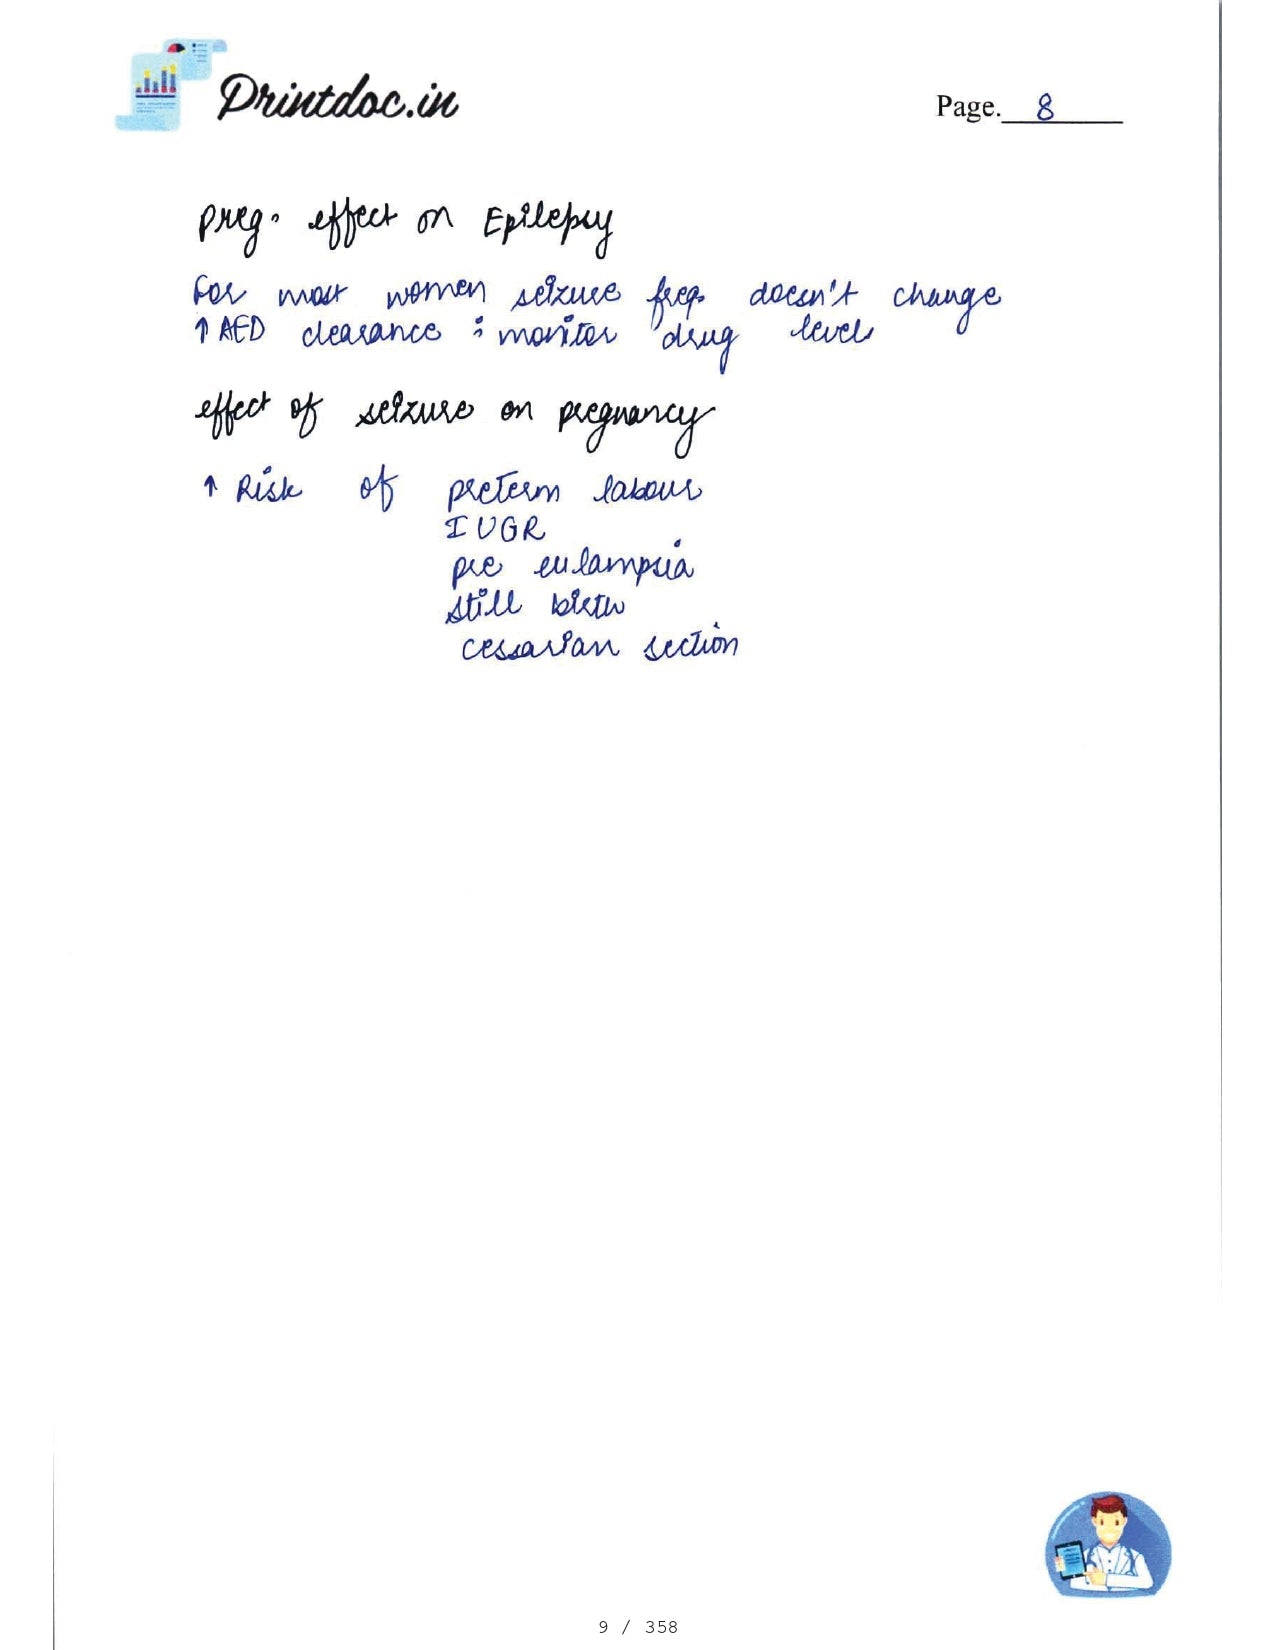 Printdoc.in
Page. 8
preg. effect on Epilepsy
For most women seizure freq. doesn't change
↑ AED clearance : monitor drug levels
effect of seizure on pregnancy
↑ Risk of preterm labour
IUGR
pre eclampsia
still birth
cessarian section
9 / 358